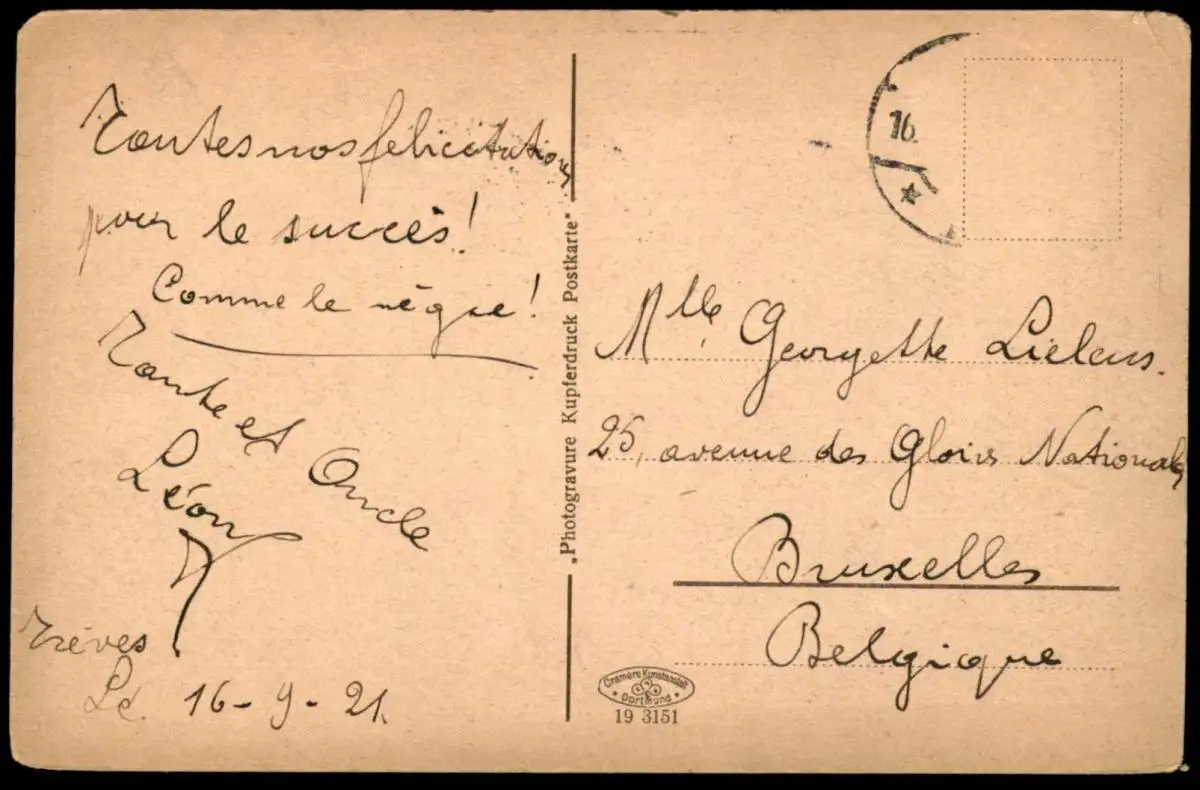 Toutes nos félicitations
pour le succès!
Comme le nègre!
Tante et Oncle
Léon
Trèves
Le 16-9-21.
"Photogravure Kupferdruck Postkarte"
16.
Mlle Georgette Lielens.
25, avenue des Gloires Nationales
Bruxelles
Belgique
Cramers Kunstanstalt
Dortmund
19 3151